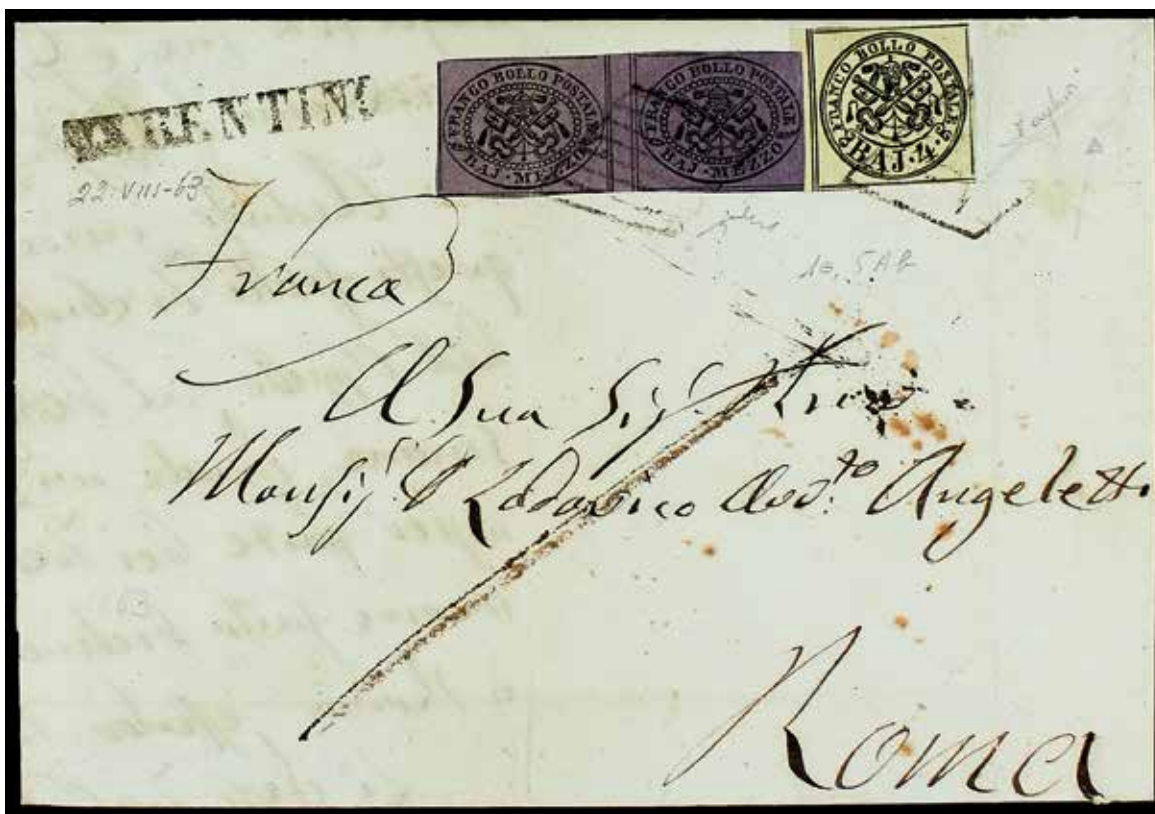 FERENTINO
FRANCO BOLLO POSTALE
BAJ. MEZZO
FRANCO BOLLO POSTALE
BAJ. MEZZO
FRANCO BOLLO POSTALE
BAJ. 4.
22-VIII-63
Franca
A Sua Sig.
Monsig. Lodovico Avv.to Angeletti
63
Roma